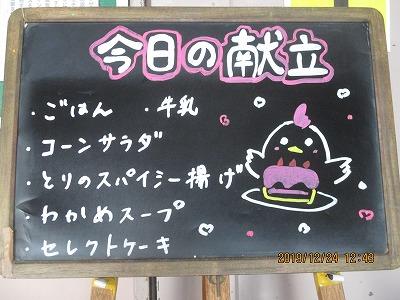 今日の献立
・ごはん ・牛乳
・コーンサラダ
・とりのスパイシー揚げ
・わかめスープ
・セレクトケーキ
2019/12/24 12:43